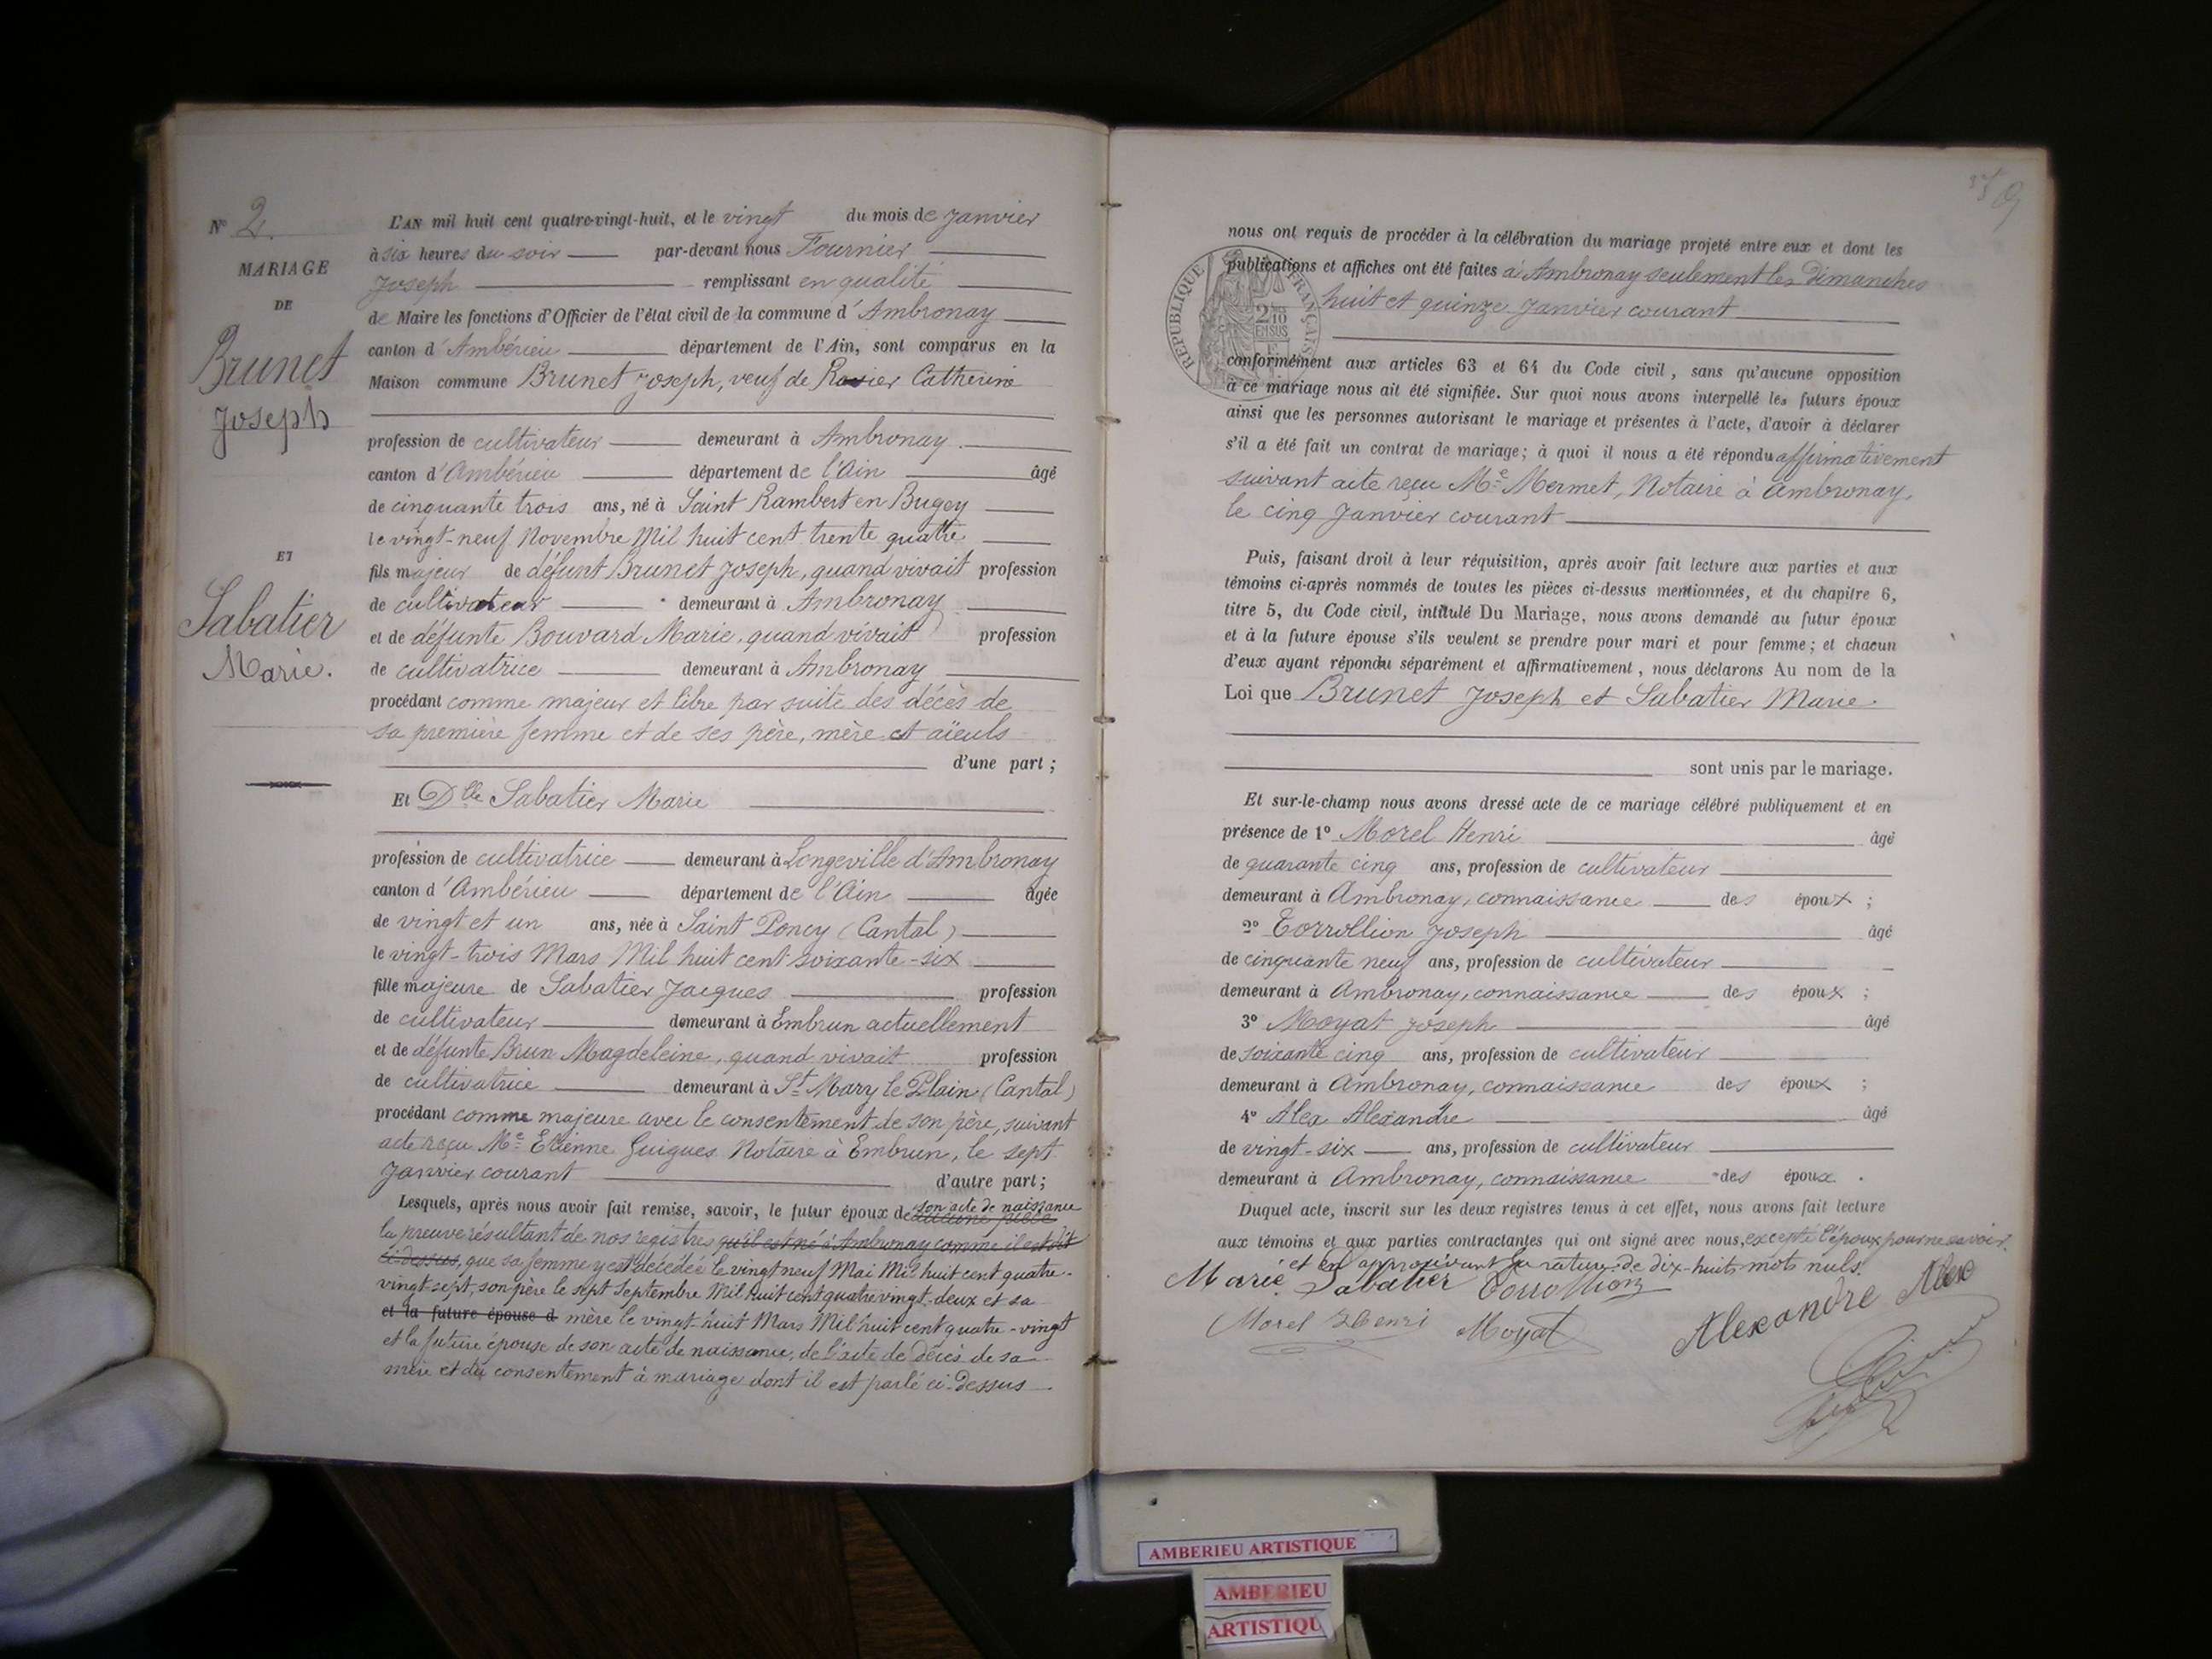 N° 2.
MARIAGE
DE
Brunet
Joseph
ET
Sabatier
Marie.
L'AN mil huit cent quatre-vingt-huit, et le vingt du mois de Janvier
à six heures du soir par-devant nous Fournier
Joseph remplissant en qualité
de Maire les fonctions d'Officier de l'état civil de la commune d'Ambronay
canton d'Ambérieu département de l'Ain, sont comparus en la
Maison commune Brunet Joseph, veuf de Ravier Catherine
profession de cultivateur demeurant à Ambronay
canton d'Ambérieu département de l'Ain âgé
de cinquante trois ans, né à Saint Rambert en Bugey
le vingt-neuf Novembre Mil huit cent trente quatre
fils majeur de défunt Brunet Joseph, quand vivait profession
de cultivateur demeurant à Ambronay
et de défunte Bouvard Marie, quand vivait profession
de cultivatrice demeurant à Ambronay
procédant comme majeur et libre par suite des décès de
sa première femme et de ses père, mère et aïeuls
d'une part ;
Et Dlle Sabatier Marie
profession de cultivatrice demeurant à Longeville d'Ambronay
canton d'Ambérieu département de l'Ain âgée
de vingt et un ans, née à Saint Poncy (Cantal)
le vingt-trois Mars Mil huit cent soixante-six
fille majeure de Sabatier Jacques profession
de cultivateur demeurant à Embrun actuellement
et de défunte Brun Magdeleine, quand vivait profession
de cultivatrice demeurant à St Mary le Plain (Cantal)
procédant comme majeure avec le consentement de son père, suivant
acte reçu Me Etienne Guigues Notaire à Embrun, le sept
Janvier courant d'autre part ;
son acte de naissance
Lesquels, après nous avoir fait remise, savoir, le futur époux de aucune pièce
la preuve résultant de nos registres qu'il est né à Ambronay comme il est dit
ci-dessus, que sa femme y est décédée le vingt neuf Mai Mil huit cent quatre-
vingt-sept, son père le sept Septembre Mil huit cent quatre vingt-deux et sa
et la future épouse d mère le vingt-huit Mars Mil huit cent quatre-vingt
et la future épouse de son acte de naissance, de l'acte de décès de sa
mère et du consentement à mariage dont il est parlé ci-dessus
nous ont requis de procéder à la célébration du mariage projeté entre eux et dont les
publications et affiches ont été faites à Ambronay seulement les Dimanches
huit et quinze Janvier courant
RÉPUBLIQUE FRANÇAISE
2/10
EN SUS
conformément aux articles 63 et 64 du Code civil, sans qu'aucune opposition
à ce mariage nous ait été signifiée. Sur quoi nous avons interpellé les futurs époux
ainsi que les personnes autorisant le mariage et présentes à l'acte, d'avoir à déclarer
s'il a été fait un contrat de mariage; à quoi il nous a été répondu affirmativement
suivant acte reçu Me Mermet, Notaire à Ambronay,
le cinq Janvier courant
Puis, faisant droit à leur réquisition, après avoir fait lecture aux parties et aux
témoins ci-après nommés de toutes les pièces ci-dessus mentionnées, et du chapitre 6,
titre 5, du Code civil, intitulé Du Mariage, nous avons demandé au futur époux
et à la future épouse s'ils veulent se prendre pour mari et pour femme; et chacun
d'eux ayant répondu séparément et affirmativement, nous déclarons Au nom de la
Loi que Brunet Joseph et Sabatier Marie.
sont unis par le mariage.
Et sur-le-champ nous avons dressé acte de ce mariage célébré publiquement et en
présence de 1° Morel Henri âgé
de quarante cinq ans, profession de cultivateur
demeurant à Ambronay, connaissance des époux ;
2° Torrollion Joseph âgé
de cinquante neuf ans, profession de cultivateur
demeurant à Ambronay, connaissance des époux ;
3° Moyat Joseph âgé
de soixante cinq ans, profession de cultivateur
demeurant à Ambronay, connaissance des époux ;
4° Alex Alexandre âgé
de vingt-six ans, profession de cultivateur
demeurant à Ambronay, connaissance des époux .
Duquel acte, inscrit sur les deux registres tenus à cet effet, nous avons fait lecture
aux témoins et aux parties contractantes qui ont signé avec nous, excepté l'époux pour ne savoir.
et en approuvant la rature de dix-huits mots nuls.
Marie Sabatier Torrollion
Morel Henri Moyat Alexandre Alex
AMBERIEU ARTISTIQUE
AMBERIEU
ARTISTIQU